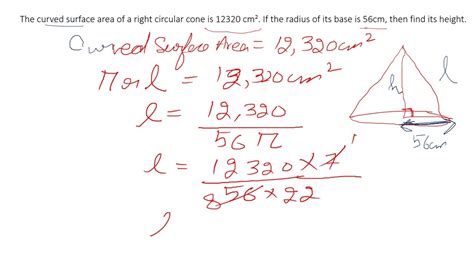 The curved surface area of a right circular cone is 12320 cm². If the radius of its base is 56cm, then find its height.
Curved Surface Area = 12,320cm²
πrl = 12,320cm²
l = 12,320
56π
l = 12320 × 7 1
8 56 × 22
h
l
56cm